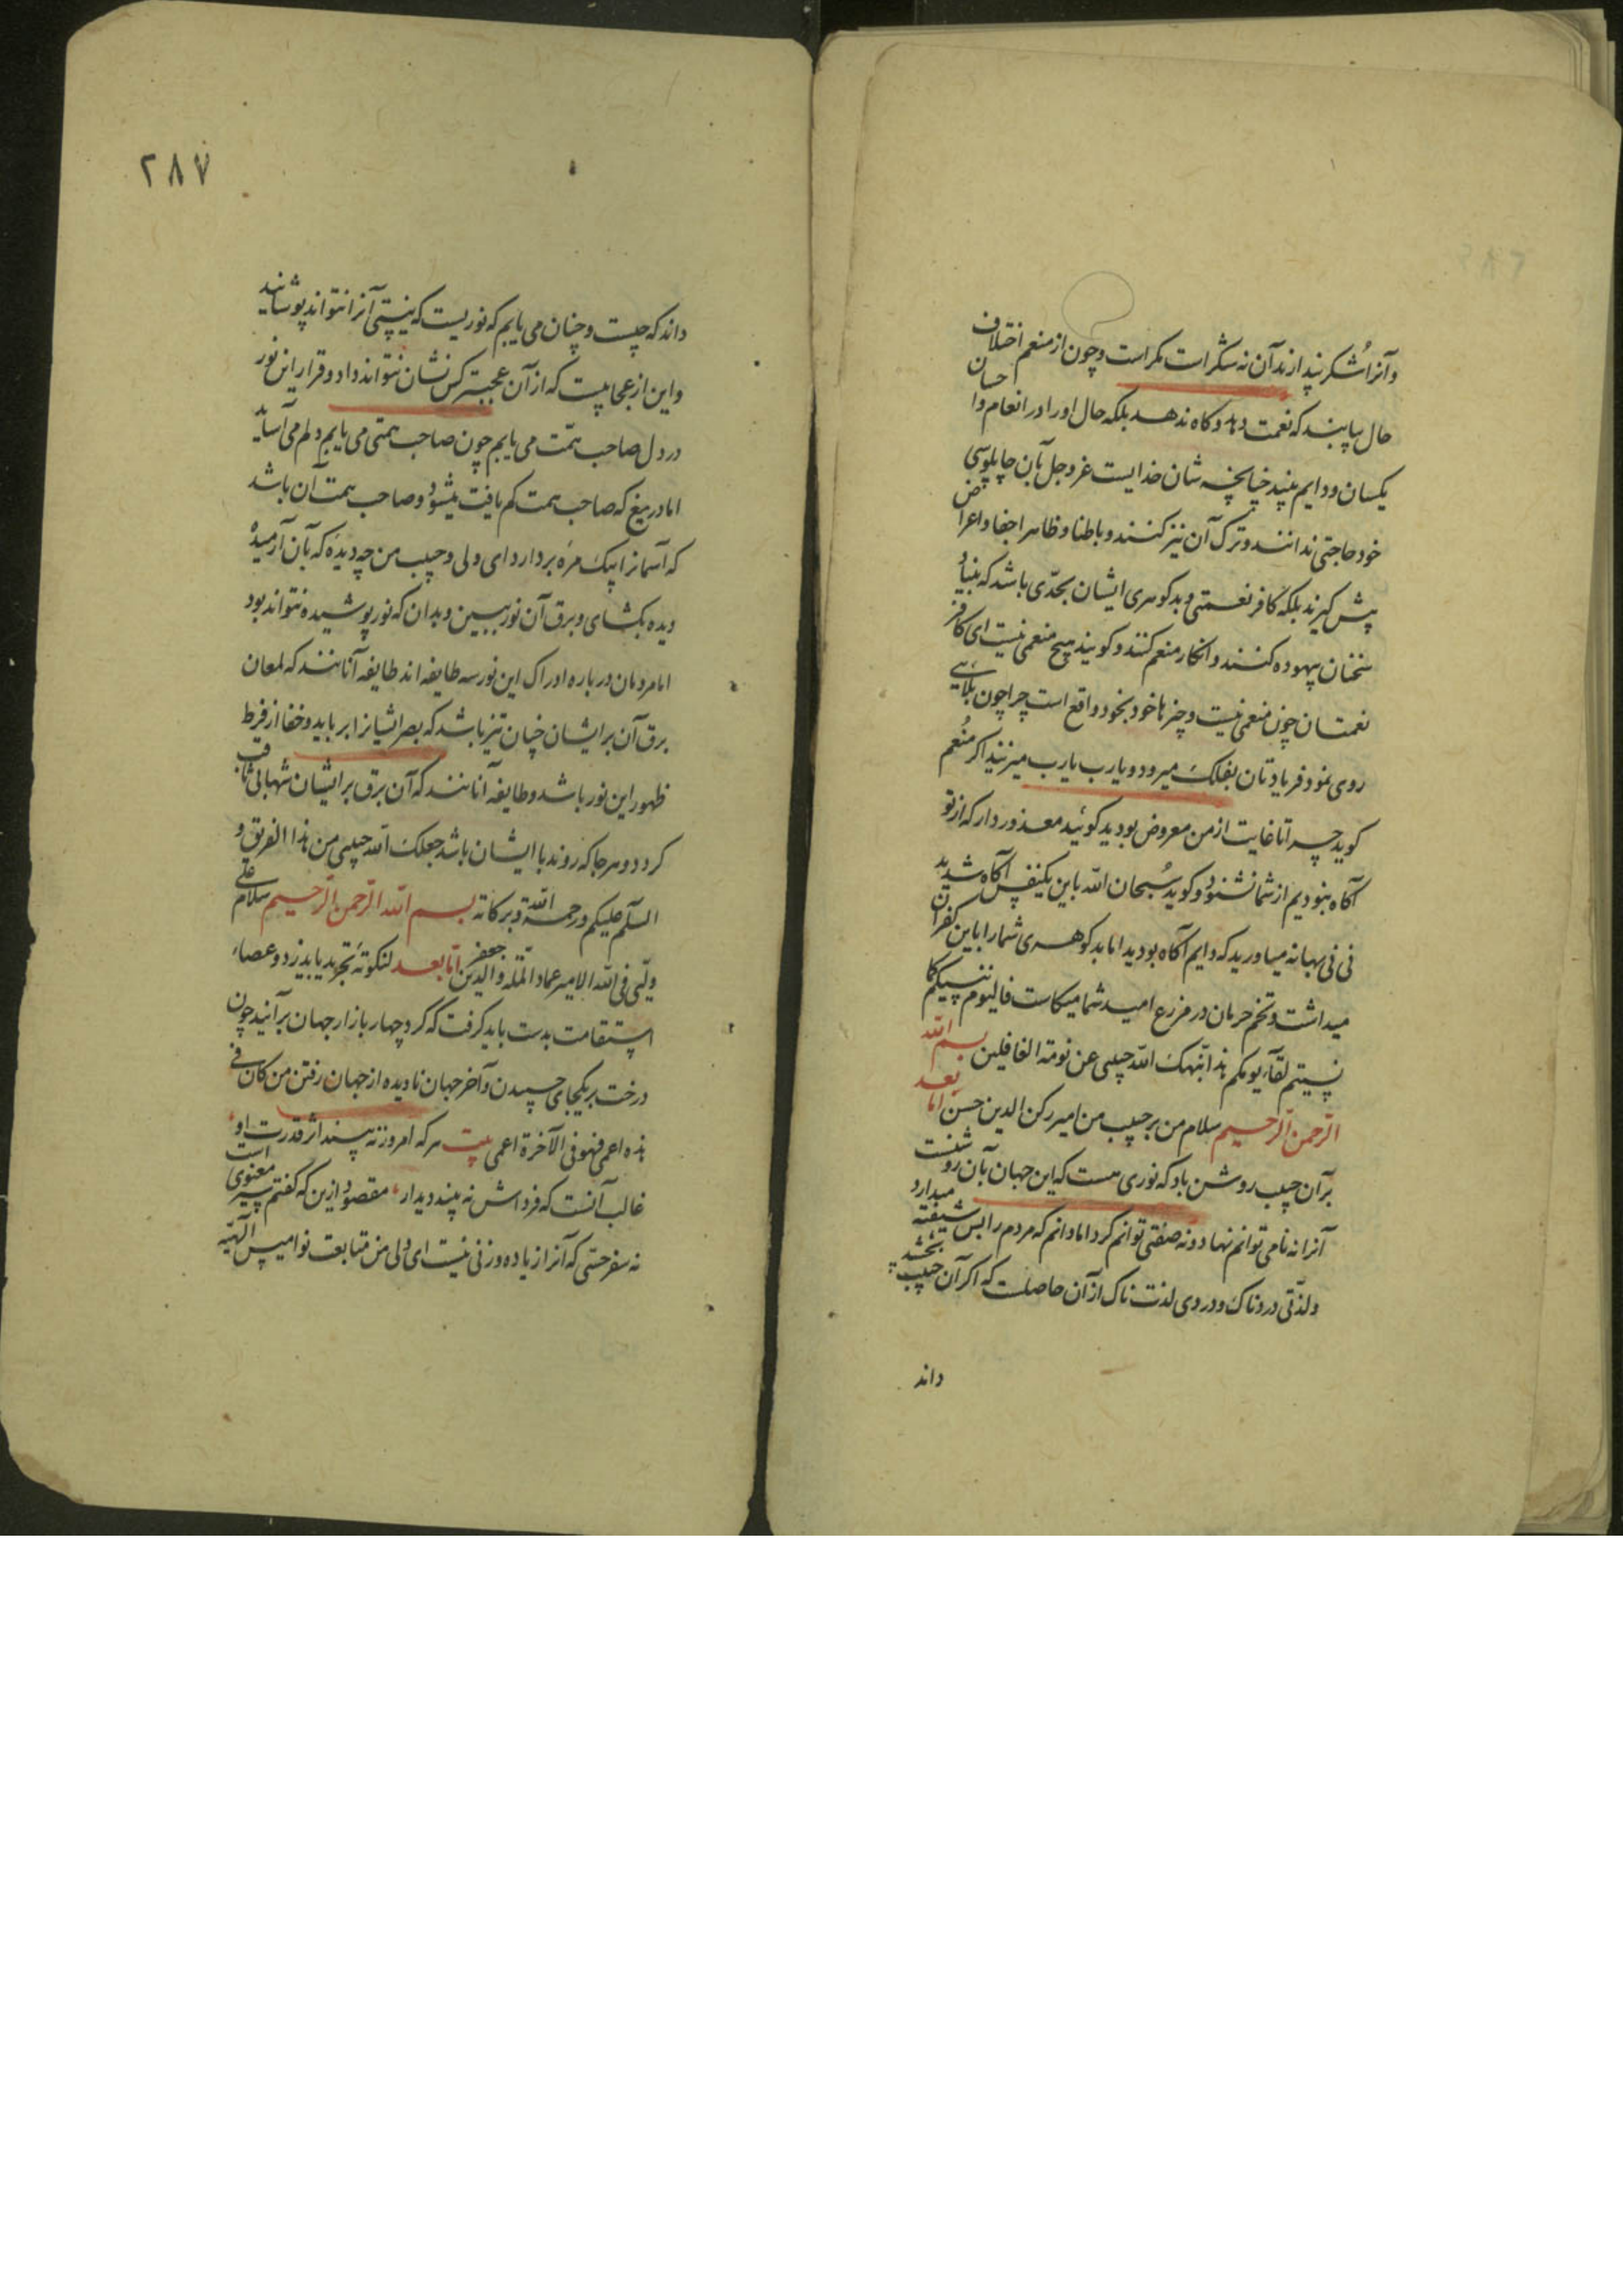 وآنرا شکر پندارند آن نه شکر است مکر است و چون از منعم اختلاف
حال بیابند که نعمت دهد و گاه ندهد بلکه حال او را در انعام و احسان
یکسان و دایم بینند چنانچه شان خدایست عز و جل بآن چاپلوسی
خود حاجتی ندانند و ترک آن نیز کنند و باطنا و ظاهرا جفا و اعراض
پیش گیرند بلکه کافر نعمتی و بدکوهری ایشان بحدّی باشد که بنیاد
سخنان بیهوده کنند و انکار منعم کنند و کویند هیچ منعمی نیست ای کافر
نعمتان چون منعمی نیست و چیزها خود بخود واقع است چرا چون بلایی
روی نمود فریادتان بفلک میرود و یارب یارب میزنید اکر منعم
کوید چرا تا غایت از من معروض بودید کوئید معذور دار که از تو
آکاه نبودیم از شما نشنود و کوید سُبحان الله باین یکنفس آکاه شدید
نی نی بهانه میاورید که دایم آکاه بودید اما بدکوهری شما را باین کفران
میداشت و تخم حرمان در مزرع امید شما میکاشت فالیوم ننسیکم کما
نسیتم لقآء یومکم هذا نبّهک الله حبیبی عن نومة الغافلین بسم الله
الرّحمن الرّحیم سلام من بر حبیب من امیر رکن الدین حسن امّا بعد
بر آن حبیب روشن باد که نوری هست که این جهان بآن روشنست
آنرا نه نامی توانم نهاد و نه صفتی توانم کرد اما دانم که مردم را بس شیفته میدارد
و لذّتی دردناک و دردی لذت ناک از آن حاصلست که اکر آن حبیب بخشد
داند
۲۸۷
داند که چیست و چنان می یابم که نوریست که نیستی آنرا نتواند پوشانید
و این از عجایبیست که از آن عجبتر کس نشان نتواند داد و قرار این نور
در دل صاحب همّت می یابم چون صاحب همتی می یابم دلم می آساید
اما دریغ که صاحب همت کم یافت میشود و صاحب همت آن باشد
که آسمانرا بیک مژه بردارد ای ولی و حبیب من چه دیدهٔ که بآن آرمیدهٔ
دیده بکشای و برق آن نور ببین و بدان که نور پوشیده نتواند بود
اما مردمان در باره ادراک این نور سه طایفه اند طایفه آنانند که لمعان
برق آن بر ایشان چنان تیز باشد که بصر ایشانرا برباید و خفا از فرط
ظهور این نور باشد و طایفه آنانند که آن برق بر ایشان شهابی ثاقب
کردد و هر جا که روند با ایشان باشد جعلک الله حبیبی من هذا الفریق و
السّلم علیکم و رحمة الله و برکاته بسم الله الرّحمن الرّحیم سلام علی
ولیّی فی الله الامیر عماد الملّه و الدین جعفر امّا بعد لنکوتهٔ تجرید یابذیزد و عصاء
استقامت بدست باید کرفت که کرد چهار بازار جهان برآئید چون
درخت بر یکجای چسپیدن و آخر جهان نادیده از جهان رفتن من کان فی
هذه اعمی فهو فی الآخرة اعمی بیت هر که امروز نه بیند اثر قدرت او
غالب آنست که فرداش نه بیند دیدار مقصود ازین که کفتم سیر معنوی است
نه سفر حسّی که آنرا زیاده وزنی نیست ای ولی من متابعت نوامیس الهیّه